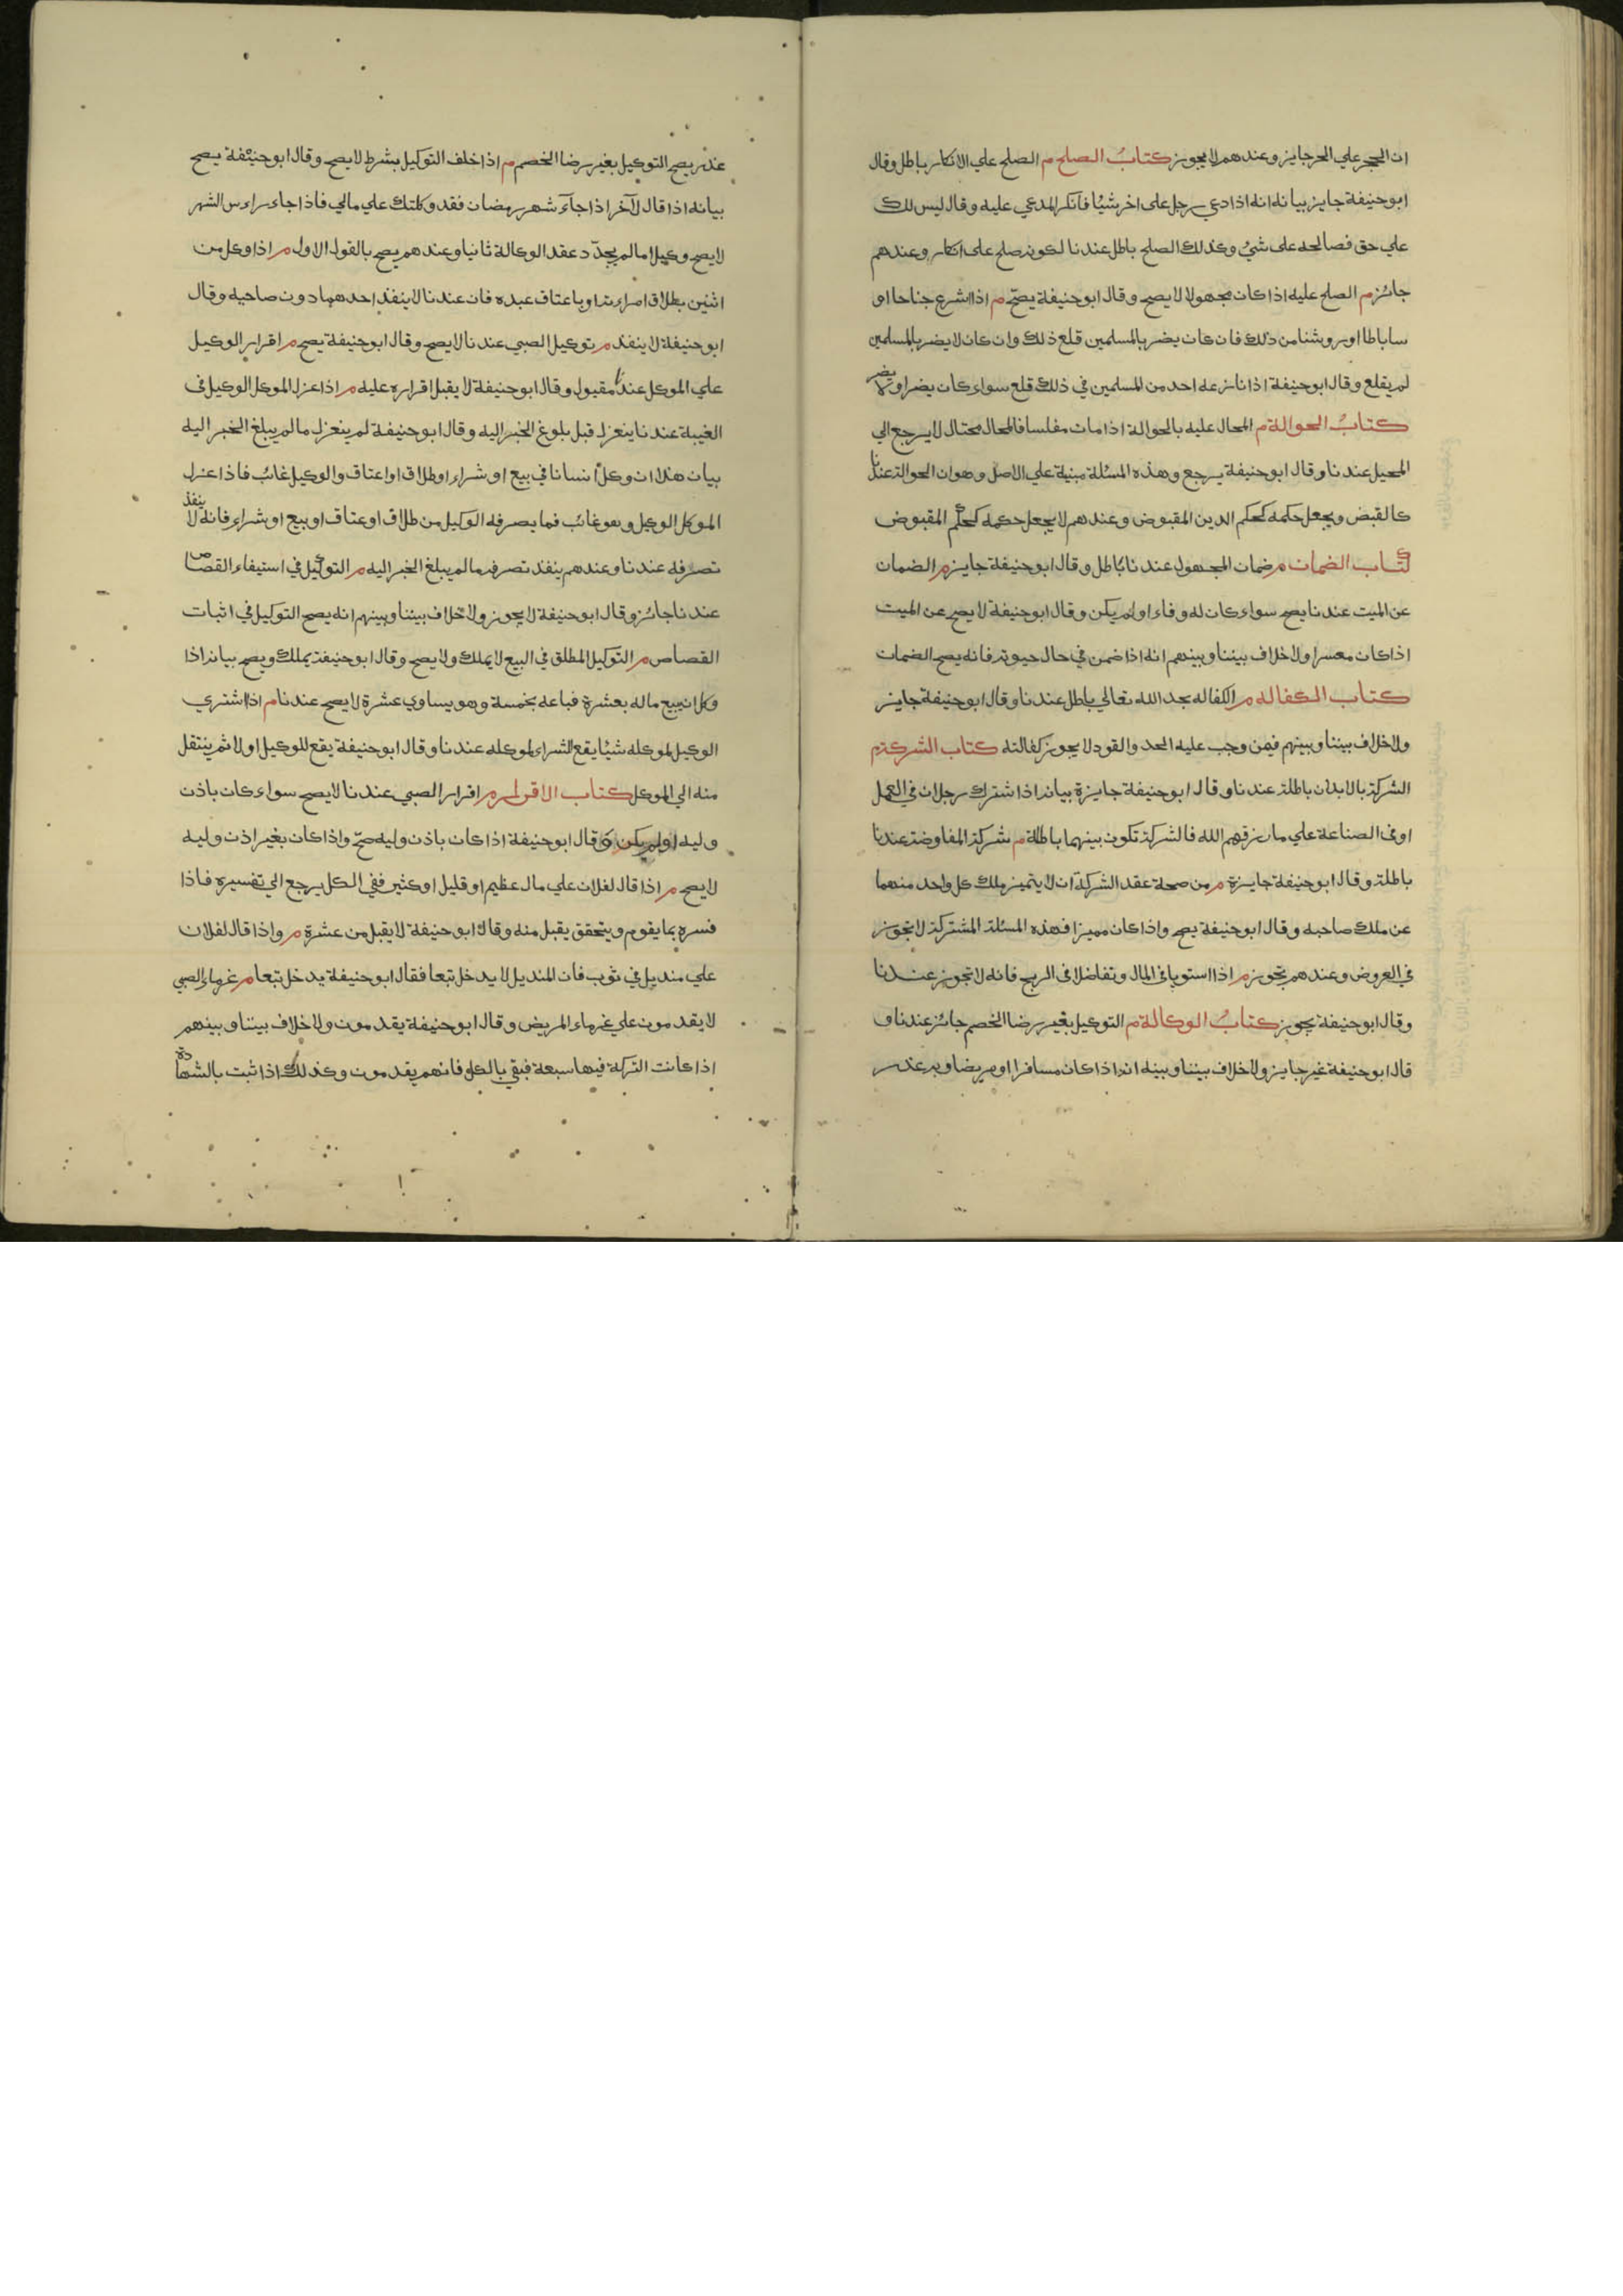 ان الحجر علي الحر جايز وعندهم لا يجوز كتاب الصلح م الصلح علي الانكار باطل وقال
ابو حنيفة جايز بيانه انه اذا ادعي رجل على اخر شيئا فانكر المدعي عليه وقال ليس لك
علي حق فصالحه على شئ وكذلك الصلح باطل عندنا لكونه صلح على انكار وعندهم
جائز م الصلح عليه اذا كان مجهولا لا يصح وقال ابو حنيفة يصح م اذا اشرع جناحا او
ساباطا او روشنا من ذلك فان كان يضر بالمسلمين قلع ذلك وان كان لا يضر بالمسلمين
لم يقلع وقال ابو حنيفة اذا نازعه احد من المسلمين في ذلك قلع سواء كان يضر او لا يضر
كتاب الحوالة م المحال عليه بالحوالة اذا مات مفلسا فالمحال محتال لا يرجع الي
المحيل عندنا وقال ابو حنيفة يرجع وهذه المسئلة مبنية علي الاصل وهو ان الحوالة عندنا
كالقبض ويجعل حكمه كحكم الدين المقبوض وعندهم لا يجعل حكمه كحكم المقبوض
كتاب الضمان م ضمان المجهول عندنا باطل وقال ابو حنيفة جايز م الضمان
عن الميت عندنا يصح سواء كان له وفاء او لم يكن وقال ابو حنيفة لا يصح عن الميت
اذا كان معسرا ولا خلاف بيننا وبينهم انه اذا ضمن في حال حيوته فانه يصح الضمان
كتاب الكفاله م الكفاله بحد الله تعالي باطل عندنا وقال ابو حنيفة جايز
ولا خلاف بيننا وبينهم فيمن وجب عليه الحد والقود لا يجوز كفالته كتاب الشركة م
الشركة بالابدان باطلة عندنا وقال ابو حنيفة جايزة بيانه اذا اشترك رجلان في العمل
او في الصناعة علي ما رزقهم الله فالشركة تكون بينهما باطلة م شركة المفاوضة عندنا
باطلة وقال ابو حنيفة جايزة م من صحة عقد الشركة ان لا يتميز ملك كل واحد منهما
عن ملك صاحبه وقال ابو حنيفة يصح واذا كان مميزا فهذه المسئلة المشتركة لا تجوز
في العروض وعندهم تجوز م اذا استويا في المال وتفاضلا في الربح فانه لا تجوز عندنا
وقال ابو حنيفة يجوز كتاب الوكالة م التوكيل بغير رضا الخصم جائز عندنا و
قال ابو حنيفة غير جايز ولا خلاف بيننا وبينه انه اذا كان مسافرا او مريضا وبه عذر
عذر يصح التوكيل بغير رضا الخصم م اذا خلف التوكيل بشرط لا يصح وقال ابو حنيفة يصح
بيانه اذا قال لآخر اذا جآء شهر رمضان فقد وكلتك علي مالي فاذا جاء راس الشهر
لا يصح وكيلا ما لم يجدّد عقد الوكالة ثانيا وعندهم يصح بالقول الاول م اذا وكل من
اثنين بطلاق امراءته او باعتاق عبده فان عندنا لا ينفذ احدهما دون صاحبه وقال
ابو حنيفة لا ينفذ م توكيل الصبي عندنا لا يصح وقال ابو حنيفة يصح م اقرار الوكيل
علي الموكل عندنا مقبول وقال ابو حنيفة لا يقبل اقراره عليه م اذا عزل الموكل الوكيل في
الغيبة عندنا ينعزل قبل بلوغ الخبر اليه وقال ابو حنيفة لم ينعزل ما لم يبلغ الخبر اليه
بيان هذا ان وكل انسانا في بيع او شراء او طلاق او اعتاق والوكيل غائب فاذا عزل
الموكل الوكيل وهو غائب فما يصرفه الوكيل من طلاق او عتاق او بيع او شراء فانه لا ينفذ
تصرفه عندنا وعندهم ينفذ تصرفه ما لم يبلغ الخبر اليه م التوكيل في استيفاء القصاص
عندنا جائز وقال ابو حنيفة لا يجوز ولا خلاف بيننا وبينهم انه يصح التوكيل في اثبات
القصاص م التوكيل المطلق في البيع لا يملك ولا يصح وقال ابو حنيفة يملك ويصح بيانه اذا
وكل ان يبيع ماله بعشرة فباعه بخمسة وهو يساوي عشرة لا يصح عندنا م اذا اشتري
الوكيل لموكله شيئا يقع الشراء لموكله عندنا وقال ابو حنيفة يقع للوكيل اولا ثم ينتقل
منه الي الموكل كتاب الاقرار م اقرار الصبي عندنا لا يصح سواء كان باذن
وليه او لم يكن وقال ابو حنيفة اذا كان باذن وليه صح واذا كان بغير اذن وليه
لا يصح م اذا قال لفلان علي مال عظيم او قليل او كثير ففي الكل يرجع الي تفسيره فاذا
فسره بما يقوم ويتحقق يقبل منه وقال ابو حنيفة لا يقبل من عشرة م واذا قال لفلان
علي منديل في ثوب فان المنديل لا يدخل تبعا فقال ابو حنيفة يدخل تبعا م غرماء الصبي
لا يقدمون علي غرماء المريض وقال ابو حنيفة يقدمون ولا خلاف بيننا وبينهم
اذا كانت التركة فيها سبعة فبقي بالكل فانهم يقدمون وكذلك اذا ثبت بالشهادة